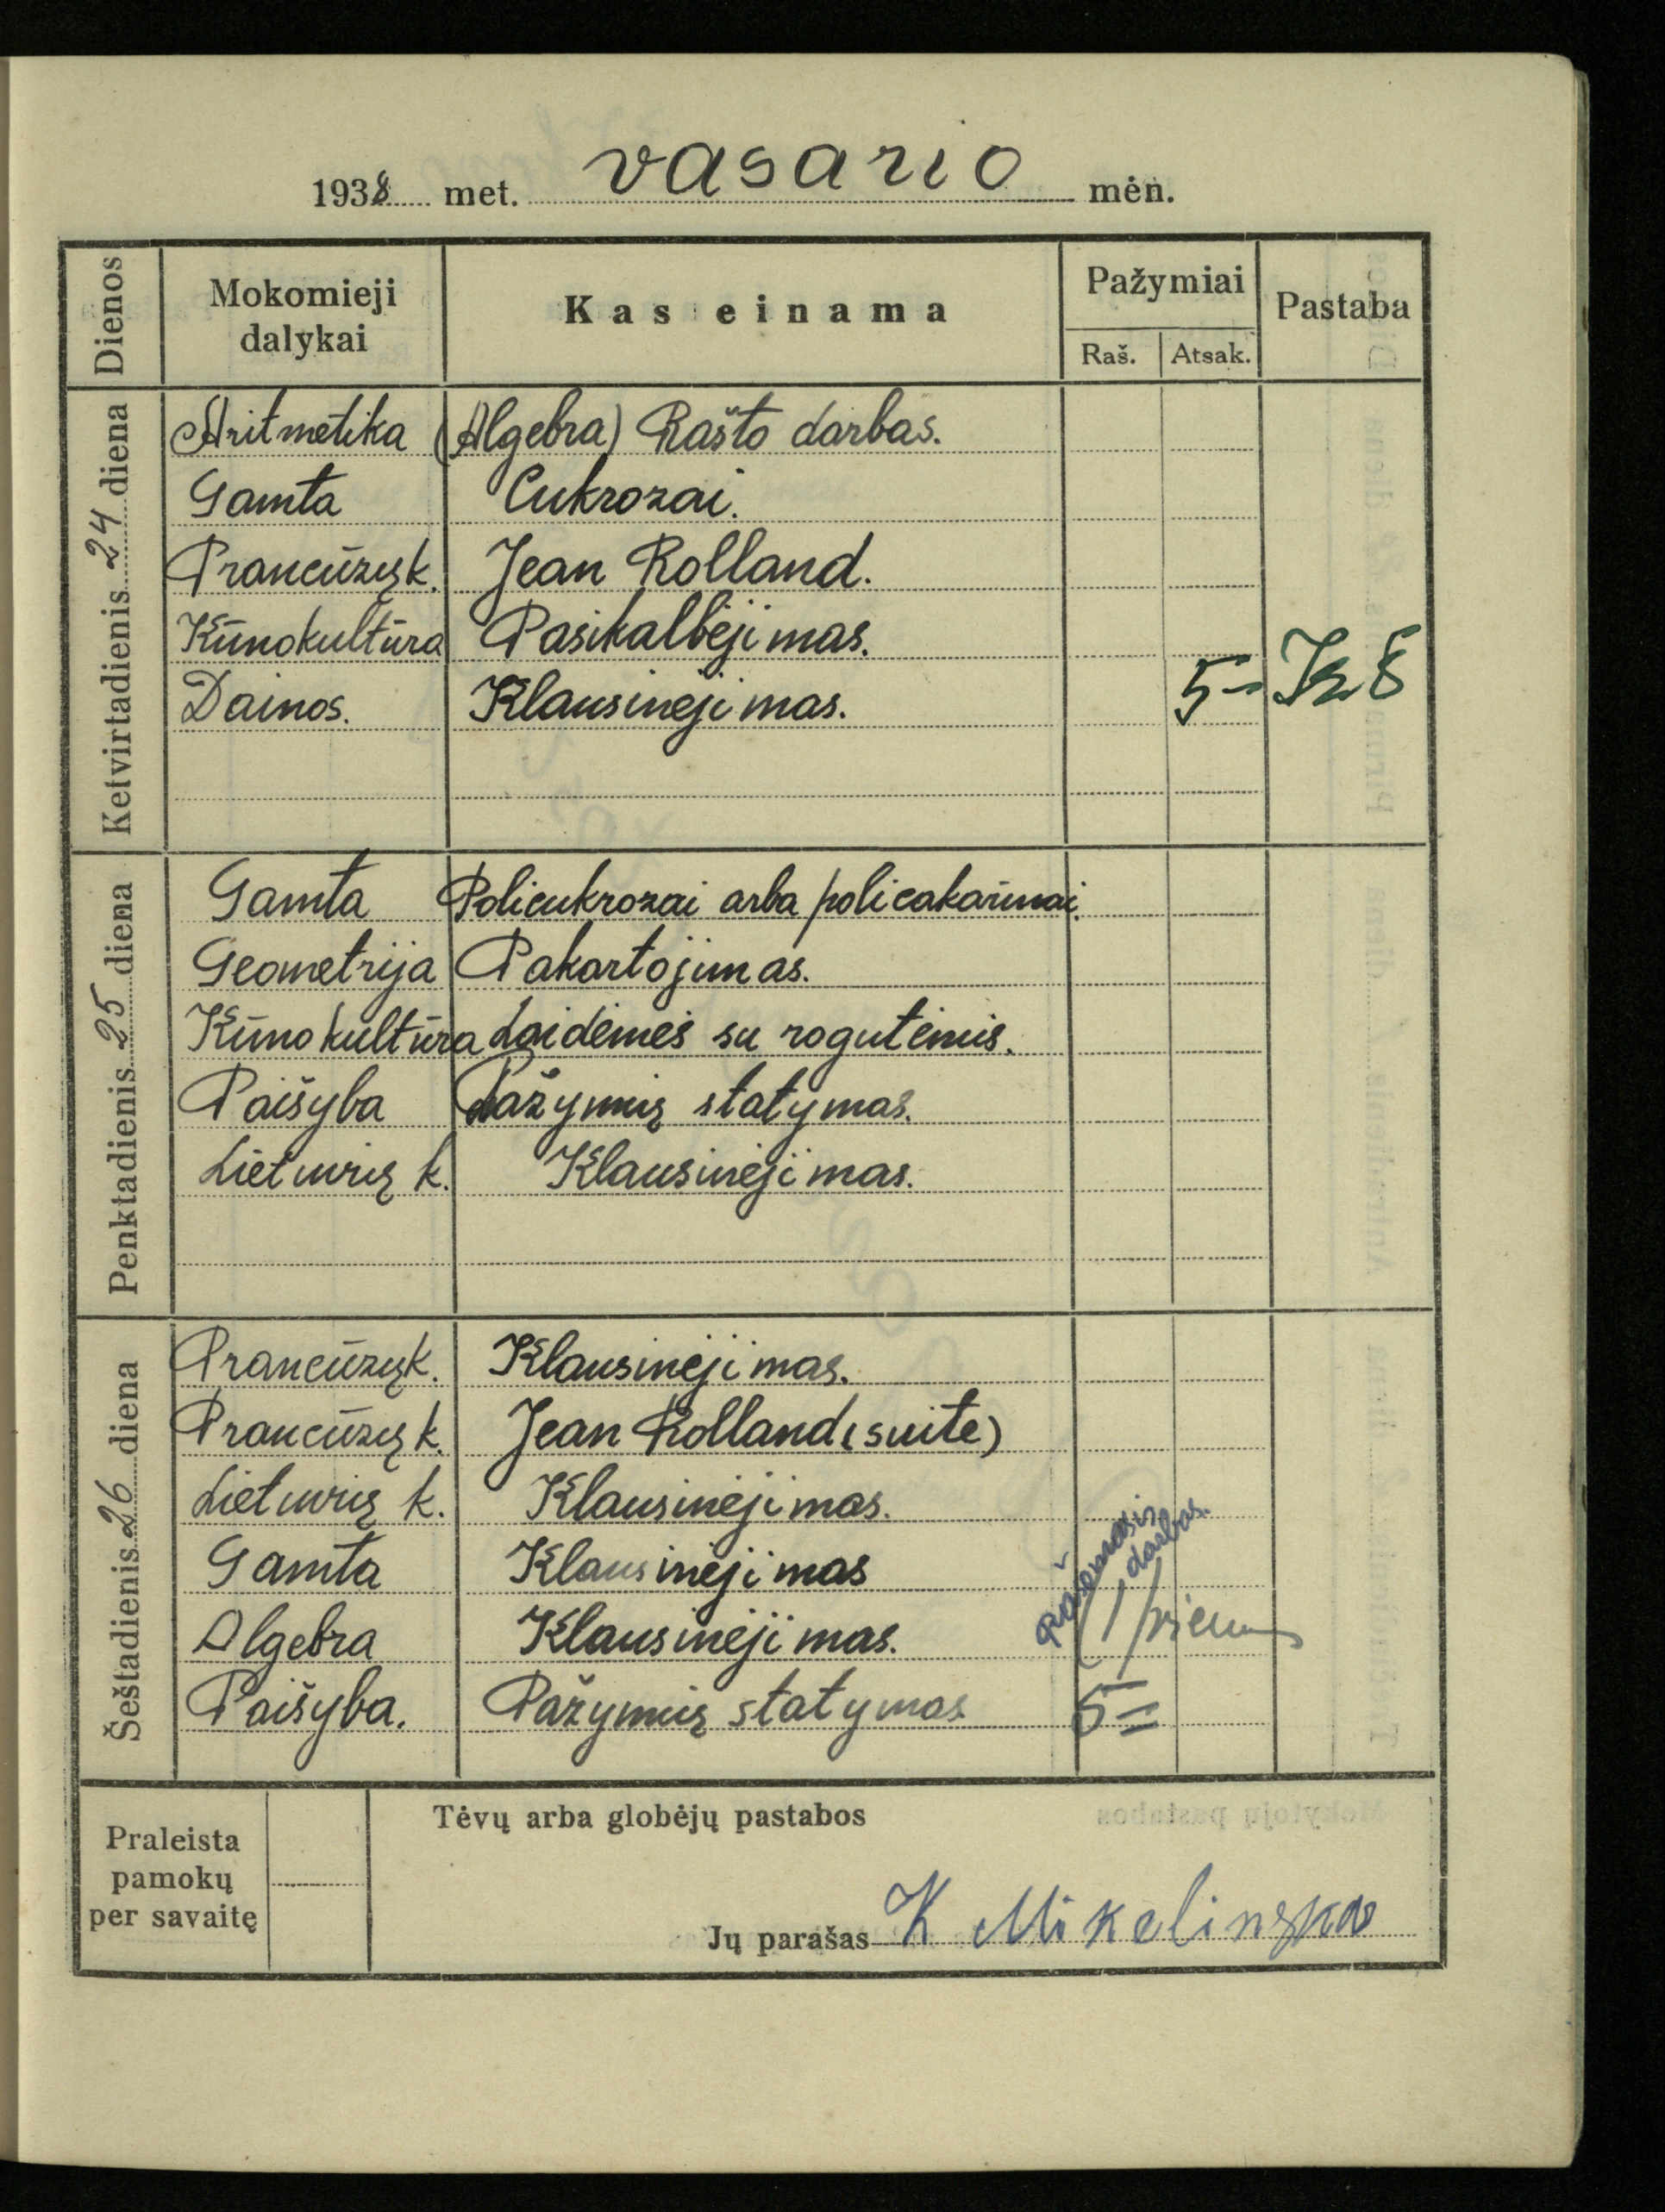 1938 met. vasario mėn.
Dienos
Mokomieji dalykai
Kas einama
Pažymiai
Raš. Atsak.
Pastaba
Ketvirtadienis 24 diena
Aritmetika (Algebra) Rašto darbas.
Gamta Cukrozai.
Prancūzų k. Jean Rolland.
Kūno kultūra Pasikalbėjimas.
Dainos. Klausinėjimas. 5-
Penktadienis 25 diena
Gamta Policukrozai arba policakarinai.
Geometrija Pakartojimas.
Kūno kultūra Laidėmės su rogutėmis.
Paišyba Pažymių statymas.
Lietuvių k. Klausinėjimas.
Šeštadienis 26 diena
Prancūzų k. Klausinėjimas.
Prancūzų k. Jean Rolland (suite)
Lietuvių k. Klausinėjimas.
Gamta Klausinėjimas
Algebra Klausinėjimas. Rašomasis darbas.
Paišyba. Pažymių statymas 5=
Praleista pamokų per savaitę
Tėvų arba globėjų pastabos
Jų parašas K Mikelinskas